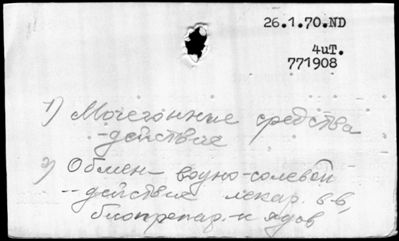 26.1.70.ND
4иT.
771908
1) Мочегонные средства
-действие
2) Обмен водно-солевой
-- действие лекар. в-в,
биопрепар. и ядов